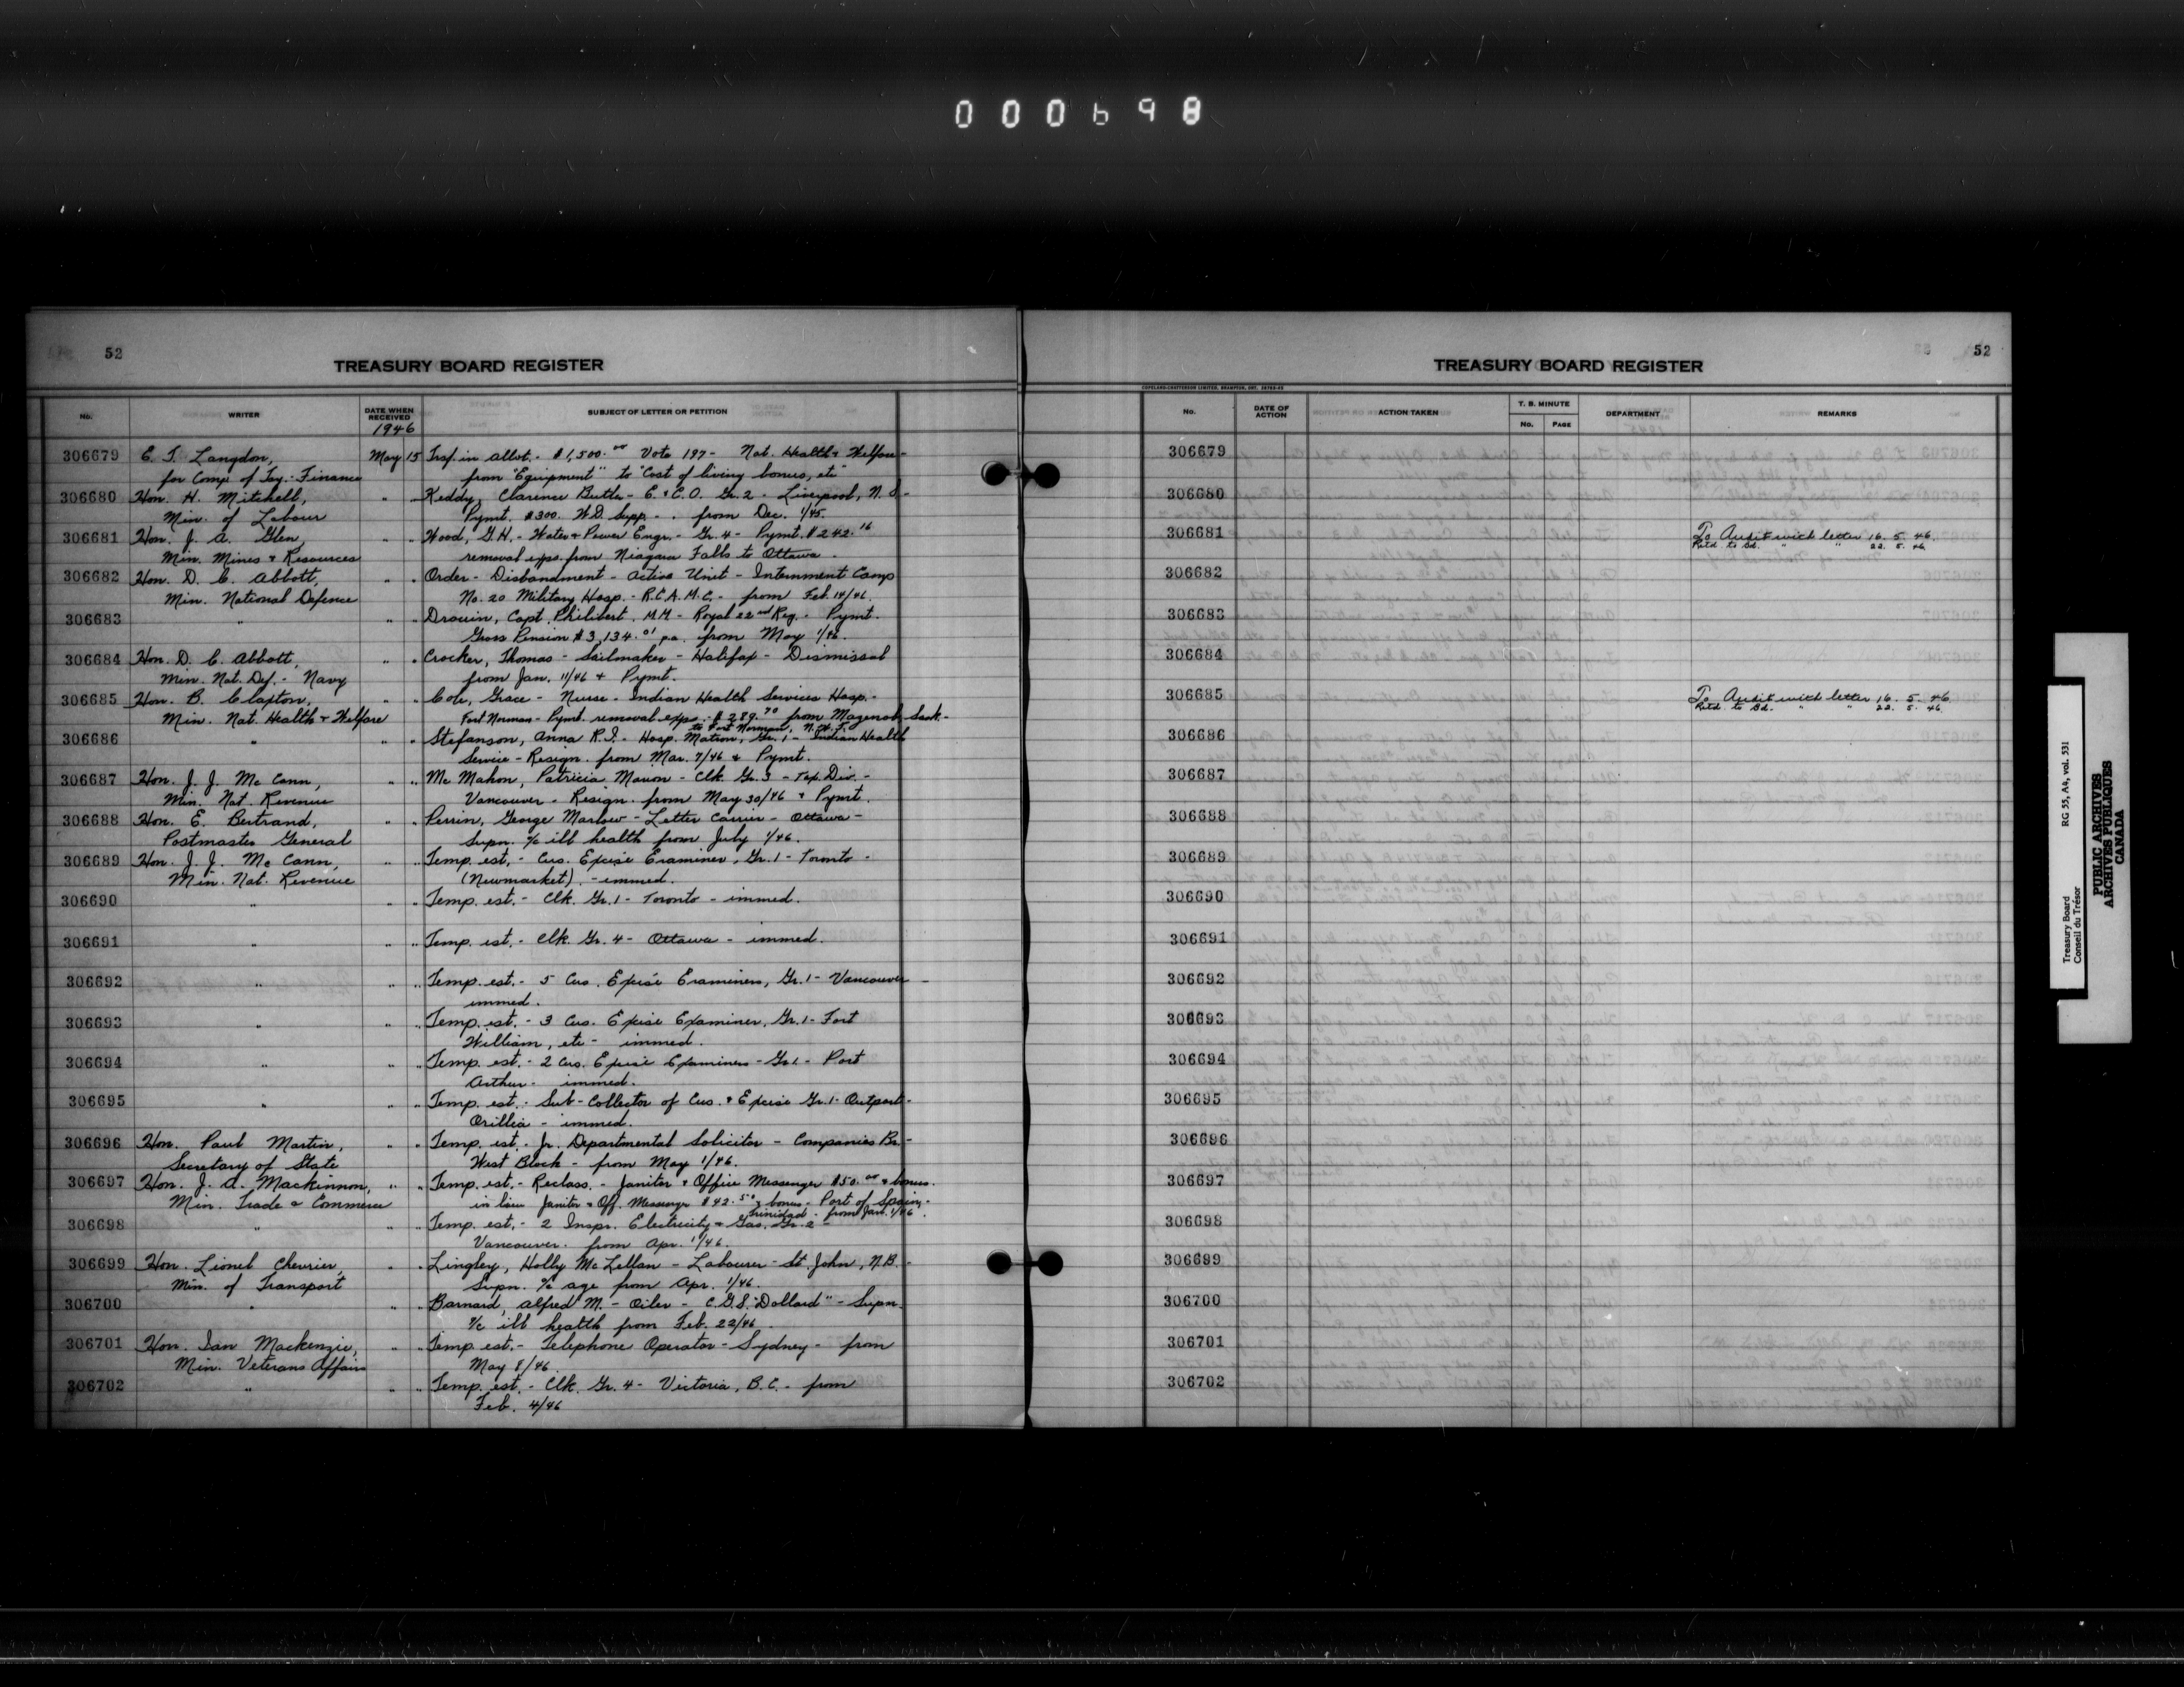 000698
52
TREASURY BOARD REGISTER
No. WRITER DATE WHEN RECEIVED SUBJECT OF LETTER OR PETITION
1946
306679 E. T. Langdon, May 15 Trsf. in allot. - $1,500.00 Vote 197 - Nat. Health & Welfare -
for Comp. of Tsy. - Finance from "Equipment" to "Cost of living bonus, etc"
306680 Hon. H. Mitchell, " " Keddy, Clarence Butler - E. & C.O. Gr. 2 - Liverpool, N.S. -
Min. of Labour Pymt. $300. W.D. Supp. - from Dec. 1/45.
306681 Hon. J. A. Glen, " " Wood, G.H. - Water & Power Engr. - Gr. 4 - Pymt. $242.16
Min. Mines & Resources removal exps. from Niagara Falls to Ottawa.
306682 Hon. D. C. Abbott, " " Order - Disbandment - Active Unit - Internment Camp
Min. National Defence No. 20 Military Hosp. - R.C.A.M.C. - from Feb. 14/46.
306683 " " " Drouin, Capt. Philibert, M.M - Royal 22nd Reg. - Pymt.
Gross Pension $3,134.01 pa. from May 1/46.
306684 Hon. D. C. Abbott, " " Crocker, Thomas - Sailmaker - Halifax - Dismissal
Min. Nat. Def. - Navy from Jan. 11/46 & Pymt.
306685 Hon. B. Claxton, " " Cole, Grace - Nurse - Indian Health Services Hosp. -
Min. Nat. Health & Welfare Fort Norman - Pymt. removal exps. $289.70 from Mazenod, Sask. -
to Fort Norman, N.W.T.
306686 " " " Stefanson, Anna R.I. - Hosp. Matron, Gr. 1 - Indian Health
Service - Resign. from Mar. 7/46 & Pymt.
306687 Hon. J. J. McCann, " " McMahon, Patricia Marion - Clk. Gr. 3 - Tax. Div. -
Min. Nat. Revenue Vancouver - Resign. from May 30/46 & Pymt.
306688 Hon. E. Bertrand, " " Perrin, George Marlow - Letter Carrier - Ottawa -
Postmaster General Supn. a/c ill health from July 1/46.
306689 Hon. J. J. McCann, " " Temp. est. - Cus. Excise Examiner, Gr. 1 - Toronto -
Min. Nat. Revenue (Newmarket). - immed.
306690 " " " Temp. est. - Clk. Gr. 1 - Toronto - immed.
306691 " " " Temp. est. - Clk. Gr. 4 - Ottawa - immed.
306692 " " " Temp. est. - 5 Cus. Excise Examiners, Gr. 1 - Vancouver -
immed.
306693 " " " Temp. est. - 3 Cus. Excise Examiner, Gr. 1 - Fort
William, etc - immed.
306694 " " " Temp. est. - 2 Cus. Excise Examiners - Gr. 1 - Port
Arthur - immed.
306695 " " " Temp. est. - Sub-Collector of Cus. & Excise Gr. 1 - Outport -
Orillia - immed.
306696 Hon. Paul Martin, " " Temp. est. - Jr. Departmental Solicitor - Companies Br. -
Secretary of State West Block - from May 1/46.
306697 Hon. J. A. Mackinnon, " " Temp. est. - Reclass. - Janitor & Office Messenger $50.00 & bonus.
Min. Trade & Commerce in lieu Janitor & Off. Messenger $42.50 & bonus - Port of Spain, -
Trinidad - from Jan. 1/46.
306698 " " " Temp. est. - 2 Inspr. Electricity & Gas. Gr. 2 -
Vancouver. from Apr. 1/46.
306699 Hon. Lionel Chevrier, " " Lingley, Holly McLellan - Labourer - St. John, N.B. -
Min. of Transport Supn. a/c age from Apr. 1/46.
306700 " " " Barnard, Alfred M. - Oiler - C.G.S. "Dollard" - Supn.
a/c ill health from Feb. 22/46.
306701 Hon. Ian Mackenzie, " " Temp. est. - Telephone Operator - Sydney - from
Min. Veterans Affairs May 8/46.
306702 " " " Temp. est. - Clk. Gr. 4 - Victoria, B.C. - from
Feb. 4/46
52
TREASURY BOARD REGISTER
COPELAND-CHATTERSON LIMITED, BRAMPTON, ONT.
No. DATE OF ACTION ACTION TAKEN T. B. MINUTE No. PAGE DEPARTMENT REMARKS
306679
306680
306681 To Audit with letter 16. 5. 46.
Retd. to Bd. " " 22. 5. 46.
306682
306683
306684
306685 To Audit with letter 16. 5. 46.
Retd. to Bd. " " 22. 5. 46.
306686
306687
306688
306689
306690
306691
306692
306693
306694
306695
306696
306697
306698
306699
306700
306701
306702
Treasury Board RG 55, A4, vol. 531
Conseil du Trésor
PUBLIC ARCHIVES
ARCHIVES PUBLIQUES
CANADA